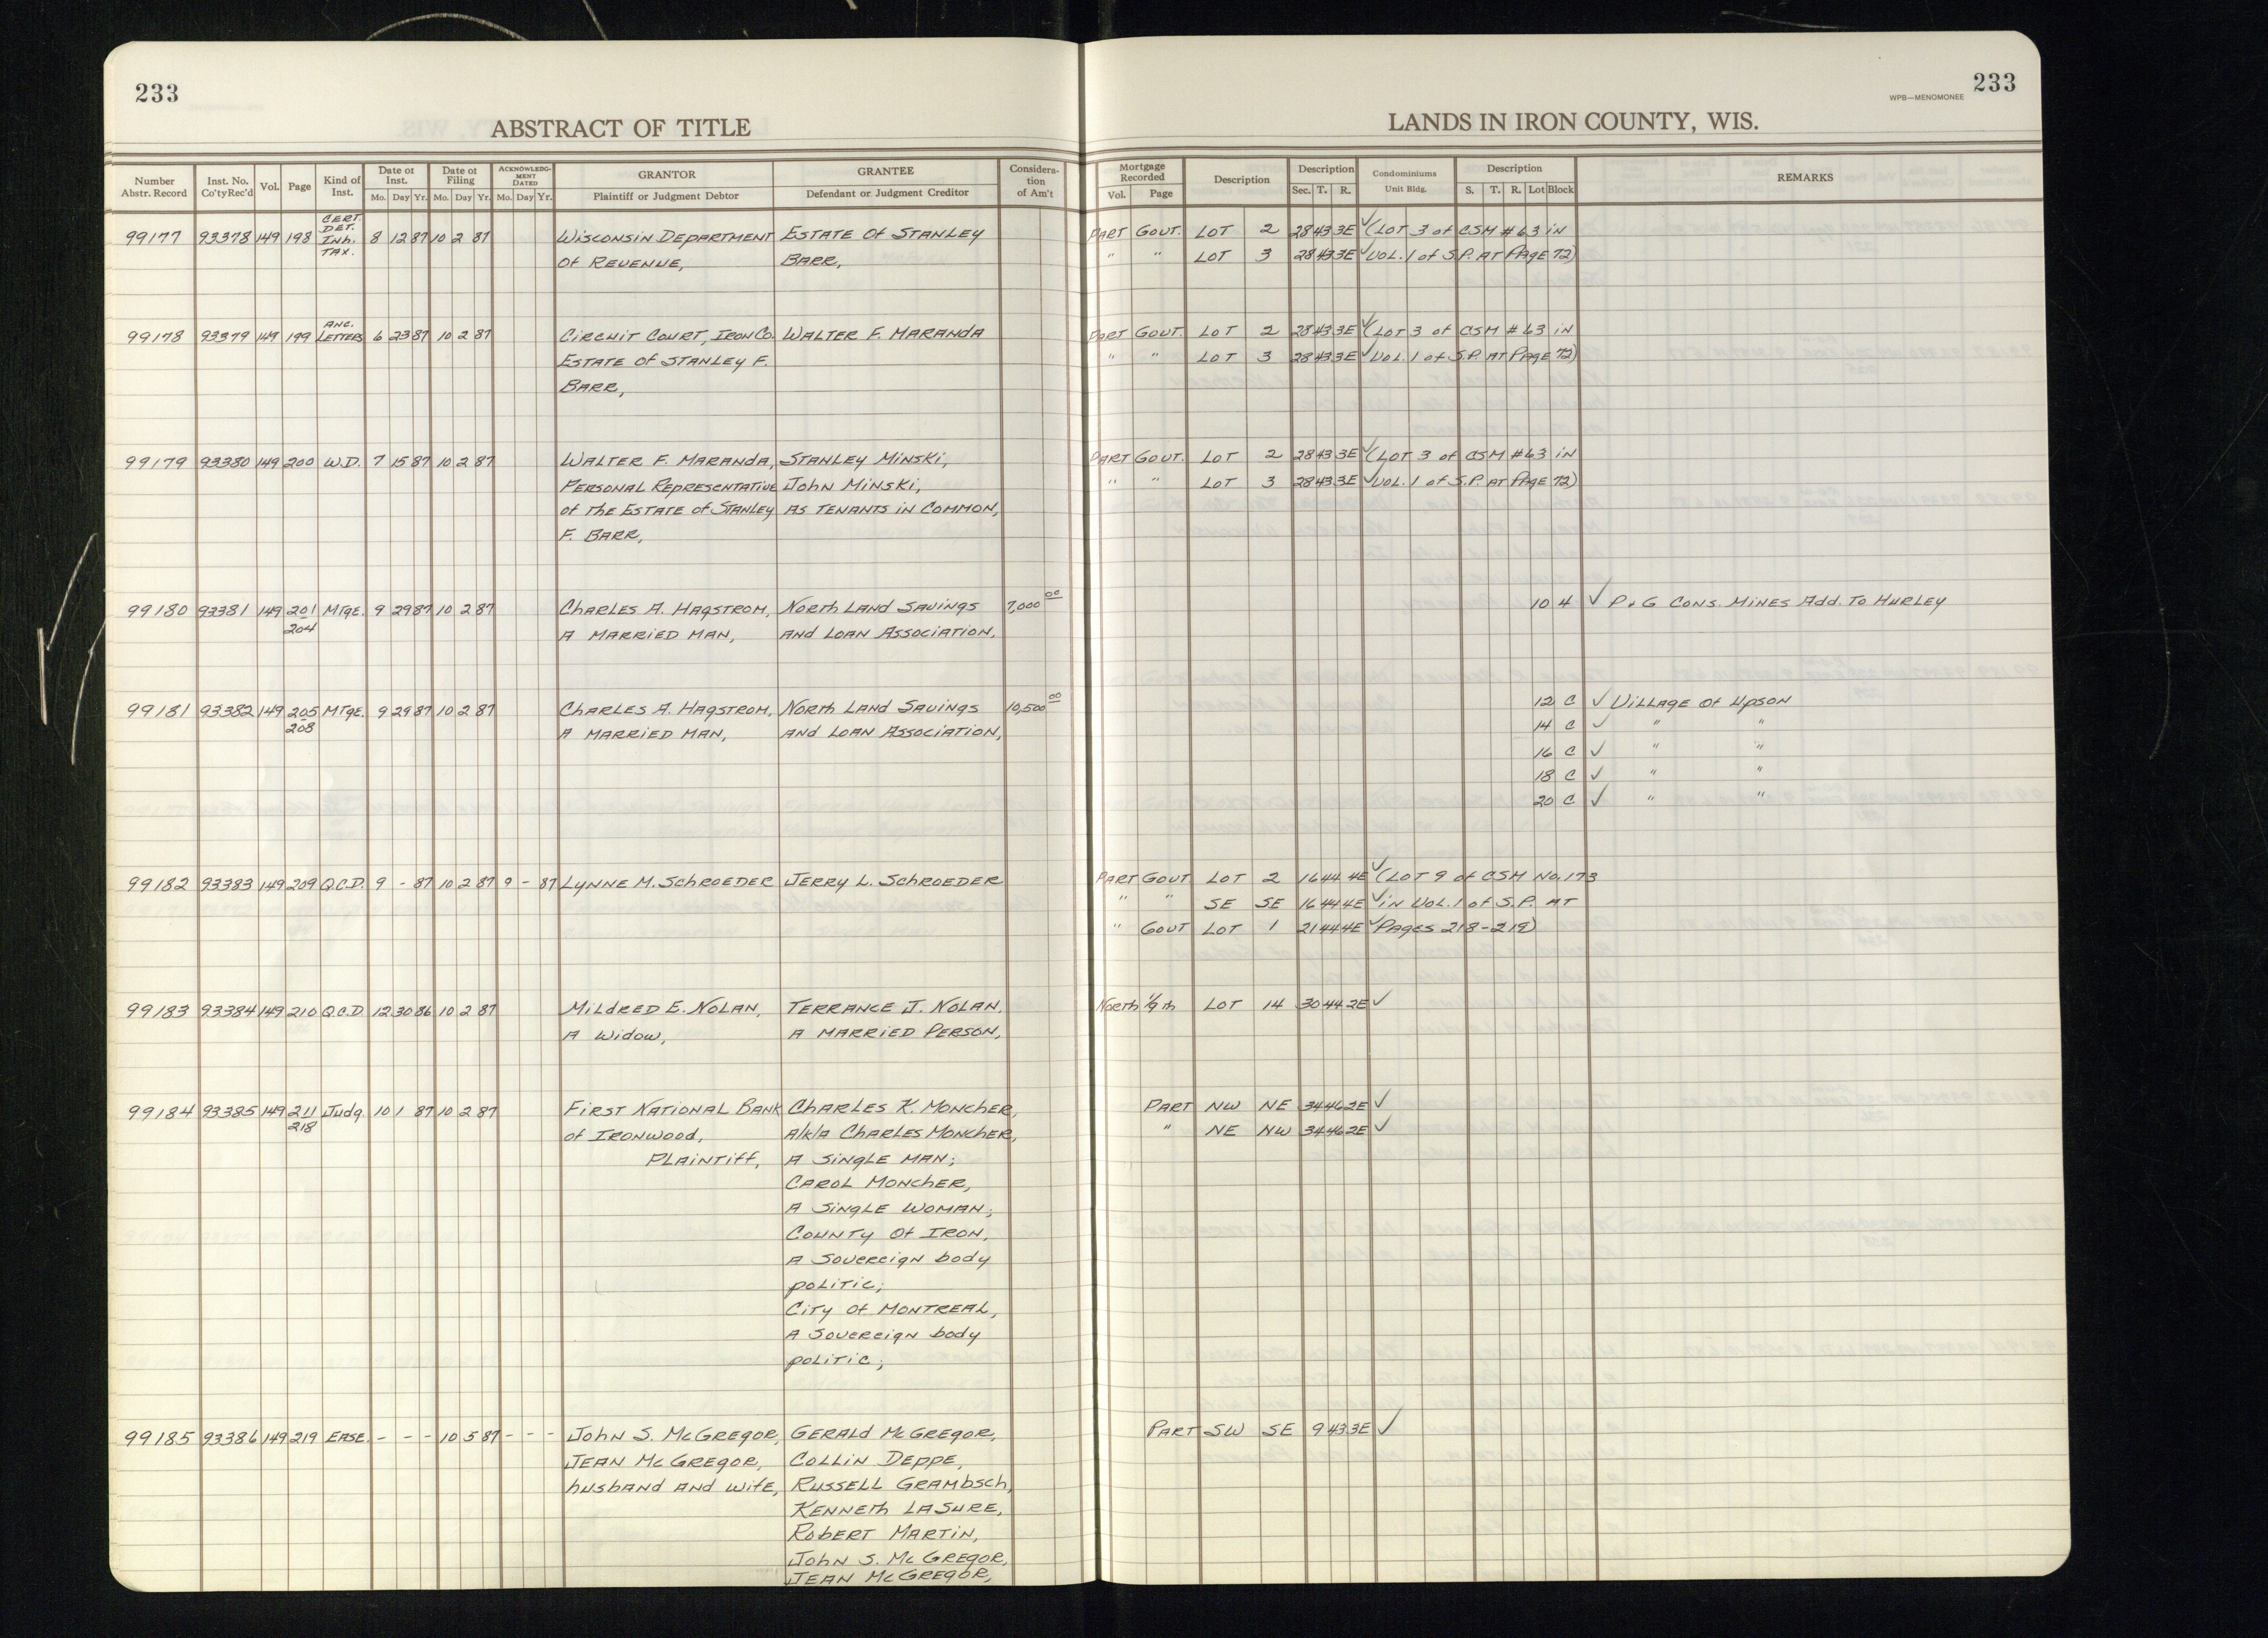 233
ABSTRACT OF TITLE
Number Abstr. Record | Inst. No. Co'ty Rec'd | Vol. | Page | Kind of Inst. | Date of Inst. Mo. Day Yr. | Date of Filing Mo. Day Yr. | ACKNOWLEDGMENT DATED Mo. Day Yr. | GRANTOR Plaintiff or Judgment Debtor | GRANTEE Defendant or Judgment Creditor | Consideration of Am't
CERT. DET. Inh. TAX.
99177 93378 149 198 8 12 87 10 2 87 Wisconsin Department Estate of Stanley
of Revenue, Barr,
ANC.
99178 93379 149 199 Letters 6 23 87 10 2 87 Circuit Court, Iron Co. Walter F. Maranda
Estate of Stanley F.
Barr,
99179 93380 149 200 W.D. 7 15 87 10 2 87 Walter F. Maranda, Stanley Minski,
Personal Representative John Minski,
of the Estate of Stanley as tenants in common,
F. Barr,
99180 93381 149 201 Mtge. 9 29 87 10 2 87 Charles A. Hagstrom, North Land Savings 7,000 00
204 a married man, and Loan Association,
99181 93382 149 205 Mtge. 9 29 87 10 2 87 Charles A. Hagstrom, North Land Savings 10,500 00
208 a married man, and Loan Association,
99182 93383 149 209 Q.C.D. 9 - 87 10 2 87 9 - 87 Lynne M. Schroeder Jerry L. Schroeder
99183 93384 149 210 Q.C.D 12 30 86 10 2 87 Mildred E. Nolan, Terrance J. Nolan,
a widow, a married person,
99184 93385 149 211 Judg. 10 1 87 10 2 87 First National Bank Charles K. Moncher,
218 of Ironwood, a/k/a Charles Moncher,
Plaintiff, a single man;
Carol Moncher,
a single woman;
County of Iron,
a sovereign body
politic;
City of Montreal,
a sovereign body
politic;
99185 93386 149 219 Ease. - - - 10 5 87 - - - John S. McGregor, Gerald McGregor,
Jean McGregor, Collin Deppe,
husband and wife, Russell Grambsch,
Kenneth LaSure,
Robert Martin,
John S. McGregor,
Jean McGregor,
WPB—MENOMONEE 233
LANDS IN IRON COUNTY, WIS.
Mortgage Recorded Vol. Page | Description | Description Sec. T. R. | Condominiums Unit Bldg. | Description S. T. R. Lot Block | REMARKS
Part Govt. Lot 2 28 43 3E ✓ (Lot 3 of CSM #63 in
" " Lot 3 28 43 3E ✓ Vol. 1 of S.P. at Page 72)
Part Govt. Lot 2 28 43 3E ✓ (Lot 3 of CSM #63 in
" " Lot 3 28 43 3E ✓ Vol. 1 of S.P. at Page 72)
Part Govt. Lot 2 28 43 3E ✓ (Lot 3 of CSM #63 in
" " Lot 3 28 43 3E ✓ Vol. 1 of S.P. at Page 72)
10 4 ✓ P & G Cons. Mines Add. To Hurley
12 C ✓ Village of Upson
14 C ✓ " "
16 C ✓ " "
18 C ✓ " "
20 C ✓ " "
Part Govt Lot 2 16 44 4E ✓ (Lot 9 of CSM No. 173
" " SE SE 16 44 4E ✓ in Vol. 1 of S.P. at
" Govt Lot 1 21 44 4E ✓ Pages 218-219)
North 1/9th Lot 14 30 44 2E ✓
Part NW NE 34 46 2E ✓
" NE NW 34 46 2E ✓
Part SW SE 9 43 3E ✓